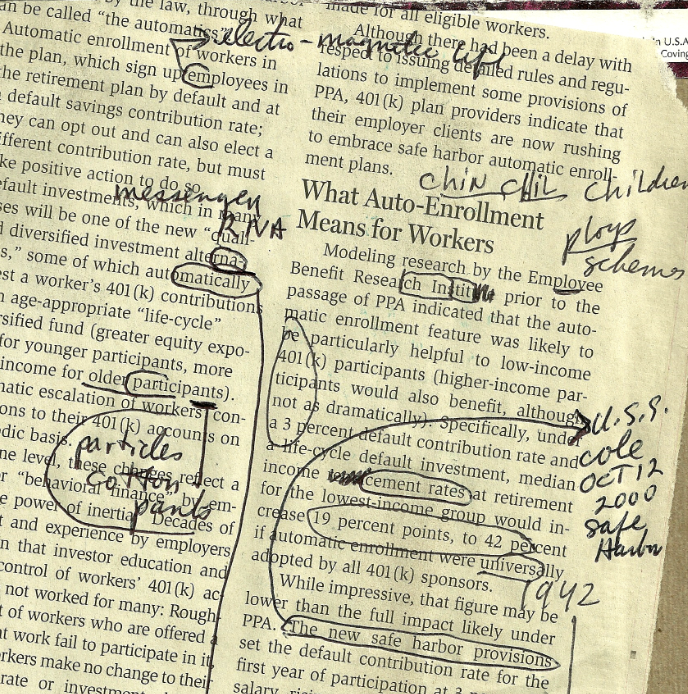 by the law, through what
an be called "the automatics
Automatic enrollment of workers in
the plan, which sign up employees in
the retirement plan by default and at
default savings contribution rate;
hey can opt out and can also elect a
ifferent contribution rate, but must
ke positive action to do so.
efault investments, which in many
ses will be one of the new "quali-
d diversified investment alterna-
s," some of which automatically
est a worker's 401(k) contributions
n age-appropriate "life-cycle"
rsified fund (greater equity expo-
for younger participants, more
income for older participants).
matic escalation of workers' con-
ons to their 401(k) accounts on
odic basis.
ne level, these changes reflect a
r "behavioral finance" by em-
e power of inertia. Decades of
t and experience by employers
n that investor education and
control of workers' 401(k) ac-
not worked for many: Rough-
t of workers who are offered a
at work fail to participate in it
rkers make no change to their
rate or investm
electro-magnetic life
messenger
RNA
particles
cotton
pants
made for all eligible workers.
Although there had been a delay with
respect to issuing detailed rules and regu-
lations to implement some provisions of
PPA, 401(k) plan providers indicate that
their employer clients are now rushing
to embrace safe harbor automatic enroll-
ment plans.
chin chil children
What Auto-Enrollment
Means for Workers
ploys
schemes
Modeling research by the Employee
Benefit Research Institu prior to the
passage of PPA indicated that the auto-
matic enrollment feature was likely to
be particularly helpful to low-income
401(k) participants (higher-income par-
ticipants would also benefit, although
not as dramatically). Specifically, under
a 3 percent default contribution rate and
a life-cycle default investment, median
income cement rates at retirement
for the lowest-income group would in-
crease 19 percent points, to 42 percent
if automatic enrollment were universally
adopted by all 401(k) sponsors.
While impressive, that figure may be
lower than the full impact likely under
PPA. The new safe harbor provisions
set the default contribution rate for the
first year of participation at 3
U.S.S.
cole
OCT 12
2000
safe
Harbor
1942
in U.S.A
Coving